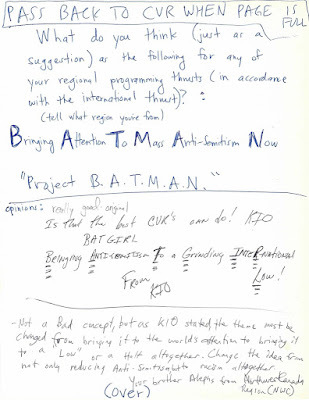 PASS BACK TO CVR WHEN PAGE IS FULL
What do you think (just as a
suggestion) as the following for any of
your regional programming thrusts (in accordance
with the international thrust)? :
(tell what region you're from)
Bringing Attention To Mass Anti-Semitism Now
"Project B.A.T.M.A.N."
opinions: really good, original
Is that the best CVR's own do! KIO
BATGIRL
Bringing Antisemitism To a Grinding InteRnational
Low!
From
KIO
-Not a Bad concept, but as KIO stated the theme must be
changed from bringing it to the world's attention to bringing it
to a "Low" or a Halt altogether. Change the idea from
not only reducing Anti-Semitism to racism altogether
Your brother Alephs from Northwest Canada
Region (NWC)
(over)